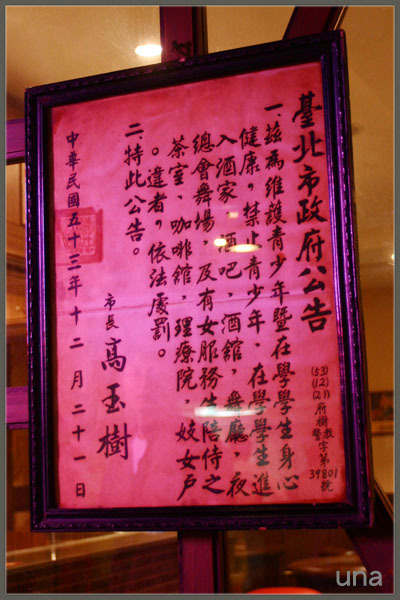 臺北市政府公告
(53)(12)(21)府樹教警字第39801號
一.茲為維護青少年暨在學學生身心
健康,禁止青少年、在學學生進
入酒家,酒吧,酒館,舞廳,夜
總會舞場,及有女服務生陪侍之
茶室,咖啡館,理療院,妓女戶
。違者,依法處罰。
二.特此公告。
市長 高玉樹
中華民國五十三年十二月二十一日
una